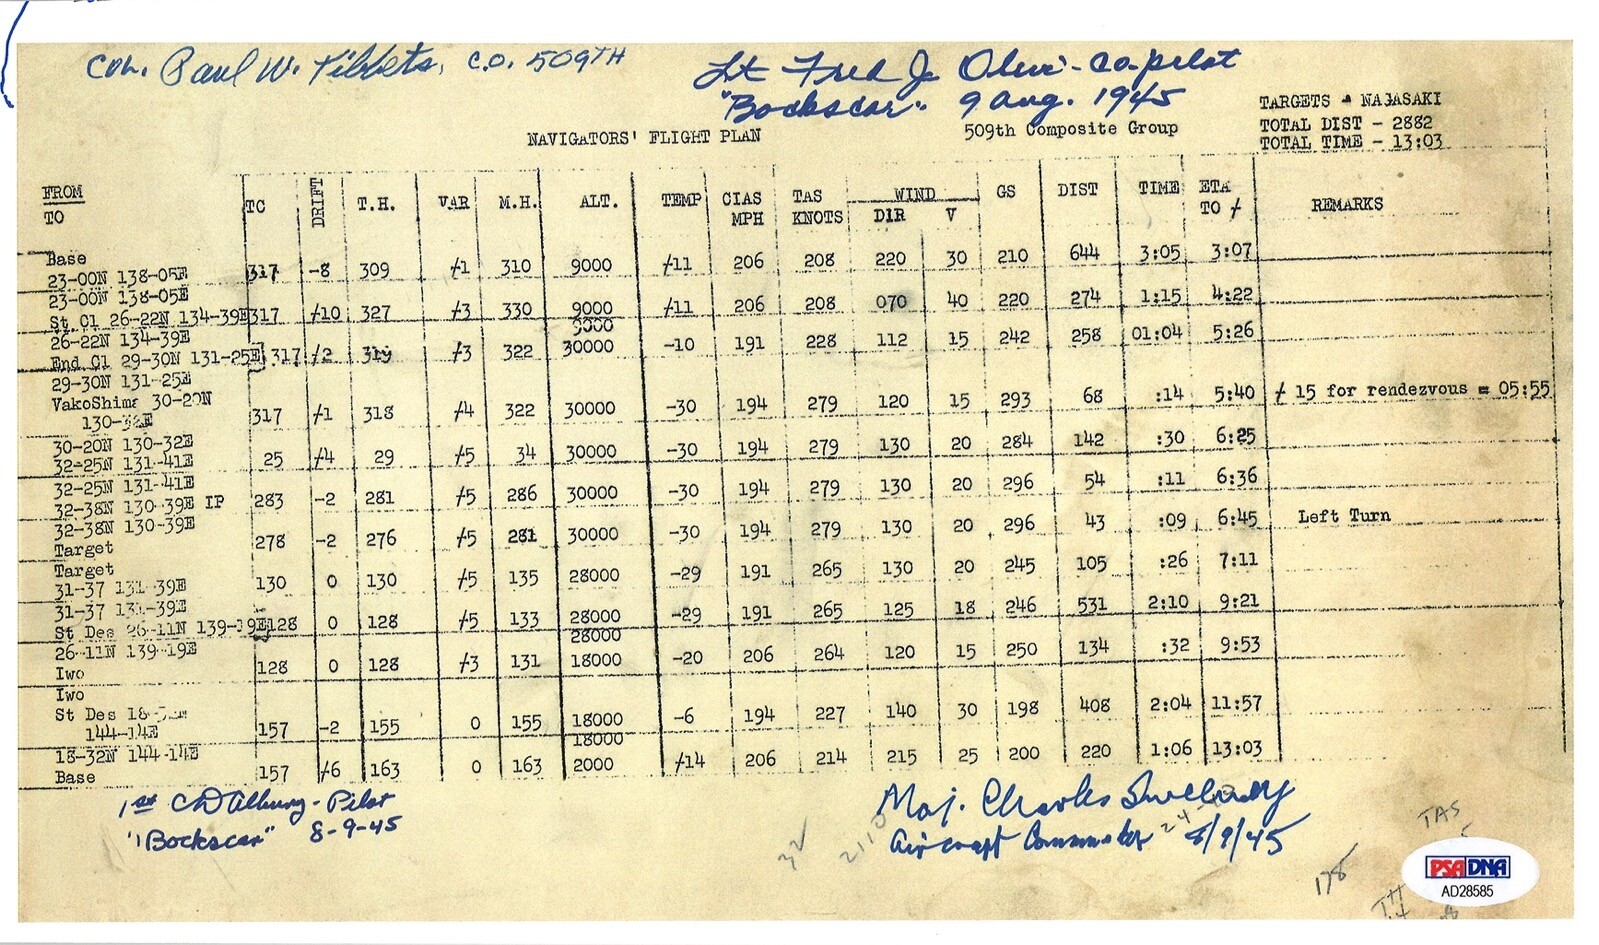 Col. Paul W. Tibbets, C.O. 509TH
Lt Fred J Olivi - Co-pilot
"Bockscar" 9 Aug. 1945
TARGETS - NAGASAKI
NAVIGATORS' FLIGHT PLAN
509th Composite Group
TOTAL DIST - 2882
TOTAL TIME - 13:03
FROM
TO
TC DRIFT T.H. VAR M.H. ALT. TEMP CIAS MPH TAS KNOTS WIND DIR V GS DIST TIME ETA TO / REMARKS
Base
23-00N 138-05E 317 -8 309 /1 310 9000 /11 206 208 220 30 210 644 3:05 3:07
23-00N 138-05E
St Cl 26-22N 134-39E 317 /10 327 /3 330 9000 /11 206 208 070 40 220 274 1:15 4:22
26-22N 134-39E 9000
End Cl 29-30N 131-25E 317 /2 319 /3 322 30000 -10 191 228 112 15 242 258 01:04 5:26
29-30N 131-25E
VakoShima 30-20N
130-32E 317 /1 318 /4 322 30000 -30 194 279 120 15 293 68 :14 5:40 / 15 for rendezvous = 05:55
30-20N 130-32E
32-25N 131-41E 25 /4 29 /5 34 30000 -30 194 279 130 20 284 142 :30 6:25
32-25N 131-41E
32-38N 130-39E IP 283 -2 281 /5 286 30000 -30 194 279 130 20 296 54 :11 6:36
32-38N 130-39E
Target 278 -2 276 /5 281 30000 -30 194 279 130 20 296 43 :09 6:45 Left Turn
Target
31-37 131-39E 130 0 130 /5 135 28000 -29 191 265 130 20 245 105 :26 7:11
31-37 131-39E
St Des 26-11N 139-19E 128 0 128 /5 133 28000 -29 191 265 125 18 246 531 2:10 9:21
26-11N 139-19E 28000
Iwo 128 0 128 /3 131 18000 -20 206 264 120 15 250 134 :32 9:53
Iwo
St Des
144-14E 157 -2 155 0 155 18000 -6 194 227 140 30 198 408 2:04 11:57
18-32N 144-14E 18000
Base 157 /6 163 0 163 2000 /14 206 214 215 25 200 220 1:06 13:03
1st CD Albury - Pilot
"Bockscar" 8-9-45
Maj. Charles Sweeney
Aircraft Commander 8/9/45
32
TAS
178
PSA DNA
AD28585